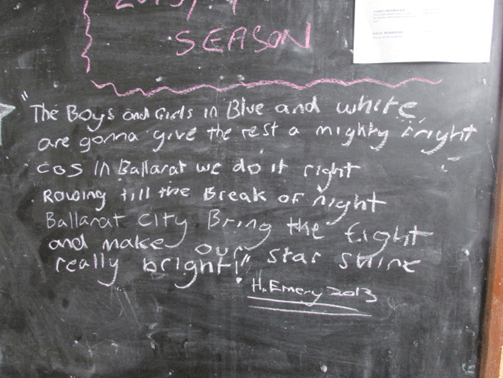 SEASON
"The Boys and Girls in Blue and white
are gonna give the rest a mighty fright
cos in Ballarat we do it right
Rowing till the Break of night
Ballarat City Bring the fight
and make our star shine
really bright!"
H. Emery 2013